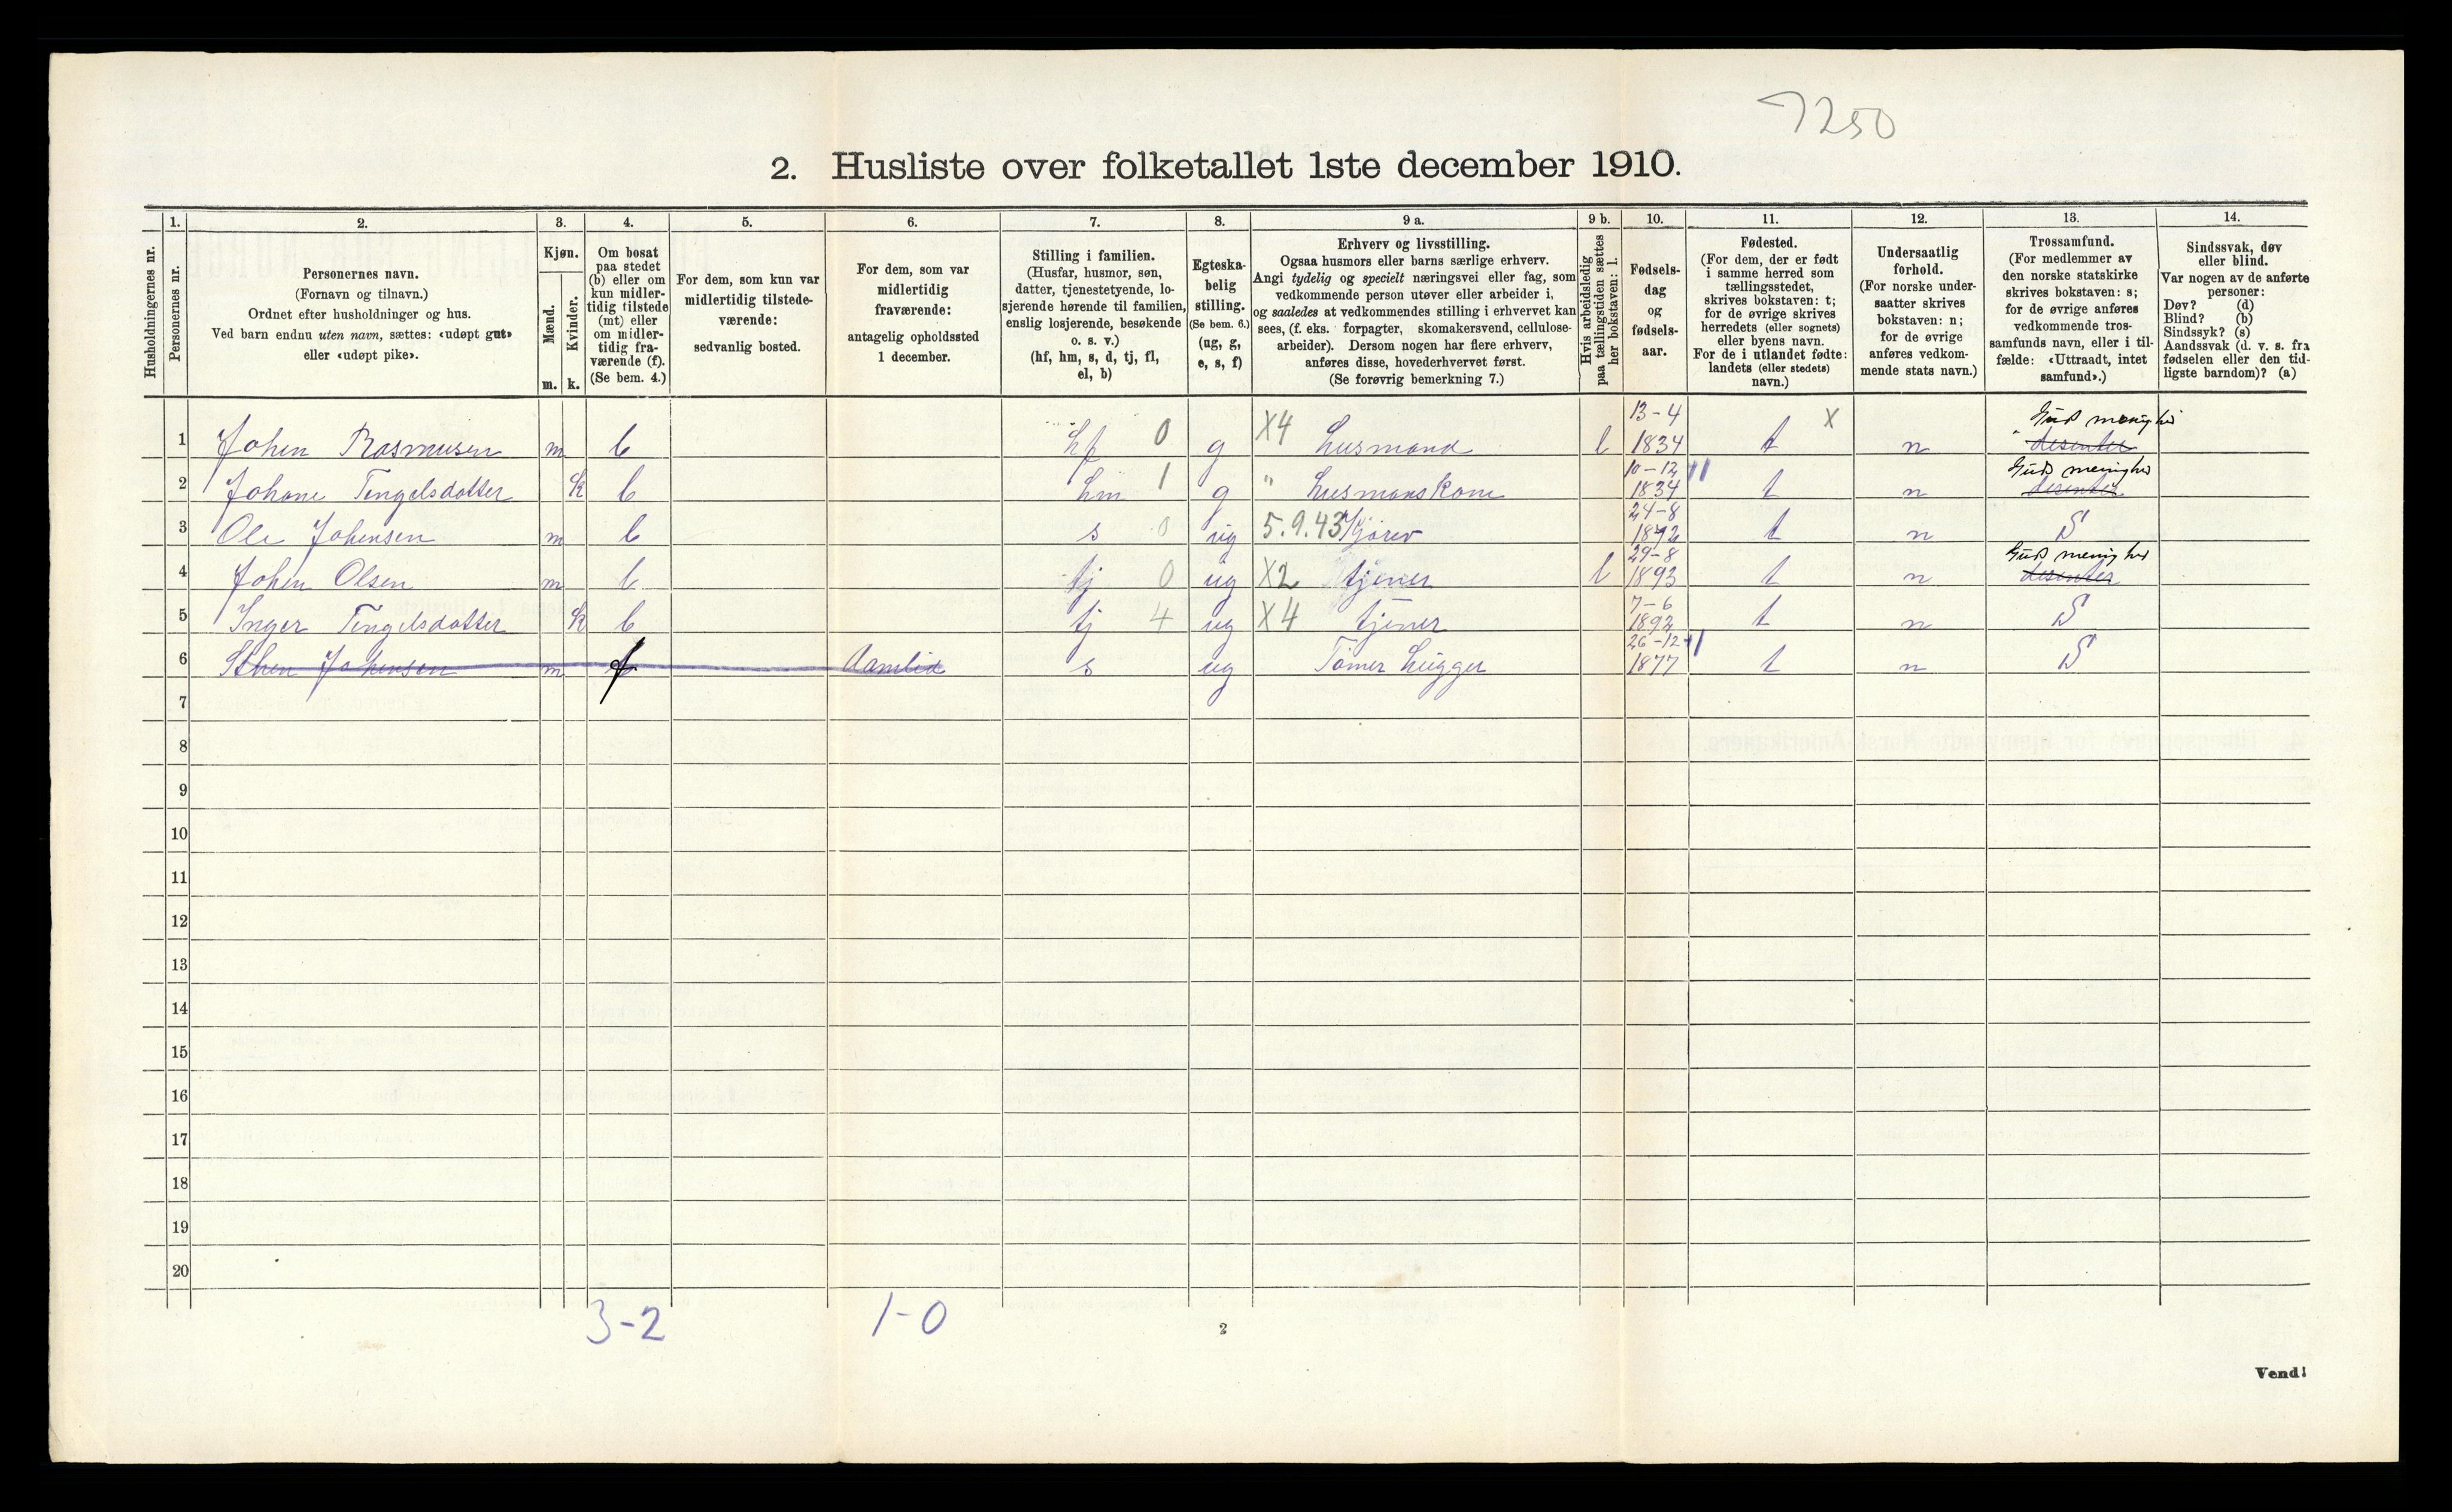 7250
2. Husliste over folketallet 1ste december 1910.
Husholdningernes nr.
1.
Personernes nr.
2.
Personernes navn.
(Fornavn og tilnavn.)
Ordnet efter husholdninger og hus.
Ved barn endnu uten navn, sættes: «udøpt gut»
eller «udøpt pike».
3.
Kjøn.
Mænd.
Kvinder.
m. k.
4.
Om bosat
paa stedet
(b) eller om
kun midler-
tidig tilstede
(mt) eller
om midler-
tidig fra-
værende (f).
(Se bem. 4.)
5.
For dem, som kun var
midlertidig tilstede-
værende:
sedvanlig bosted.
6.
For dem, som var
midlertidig
fraværende:
antagelig opholdssted
1 december.
7.
Stilling i familien.
(Husfar, husmor, søn,
datter, tjenestetyende, lo-
sjerende hørende til familien,
enslig losjerende, besøkende
o. s. v.)
(hf, hm, s, d, tj, fl,
el, b)
8.
Egteska-
belig
stilling.
(Se bem. 6.)
(ug, g,
e, s, f)
9 a.
Erhverv og livsstilling.
Ogsaa husmors eller barns særlige erhverv.
Angi tydelig og specielt næringsvei eller fag, som
vedkommende person utøver eller arbeider i,
og saaledes at vedkommendes stilling i erhvervet kan
sees, (f. eks. forpagter, skomakersvend, cellulose-
arbeider). Dersom nogen har flere erhverv,
anføres disse, hovederhvervet først.
(Se forøvrig bemerkning 7.)
9 b.
Hvis arbeidsledig
paa tællingstiden sættes
her bokstaven: l.
10.
Fødsels-
dag
og
fødsels-
aar.
11.
Fødested.
(For dem, der er født
i samme herred som
tællingsstedet,
skrives bokstaven: t;
for de øvrige skrives
herredets (eller sognets)
eller byens navn.
For de i utlandet fødte:
landets (eller stedets)
navn.)
12.
Undersaatlig
forhold.
(For norske under-
saatter skrives
bokstaven: n;
for de øvrige
anføres vedkom-
mende stats navn.)
13.
Trossamfund.
(For medlemmer av
den norske statskirke
skrives bokstaven: s;
for de øvrige anføres
vedkommende tros-
samfunds navn, eller i til-
fælde: «Uttraadt, intet
samfund».)
14.
Sindssvak, døv
eller blind.
Var nogen av de anførte
personer:
Døv? (d)
Blind? (b)
Sindssyk? (s)
Aandssvak (d. v. s. fra
fødselen eller den tid-
ligste barndom)? (a)
1 Johen Rasmusen m b hf 0 g X4 husmand l 13-4 1834 t X n Guds menighe desenter
2 Johane Tengelsdatter k b hm 1 g " husmanskone 10-12 1834 t n Guds menighe desenter
3 Ole Johensen m b s 0 ug 5.9.43 24-8 1892 t n S
4 Johen Olsen m b tj 0 ug X2 tjener l 29-8 1893 t n Guds menighe desenter
5 Inger Tengelsdatter k b tj 4 ug X4 tjener 7-6 1892 t n S
6 Johensen m f s ug Tømer hugger 26-12 1877 t n S
7
8
9
10
11
12
13
14
15
16
17
18
19
20
3-2 1-0
2
Vend!